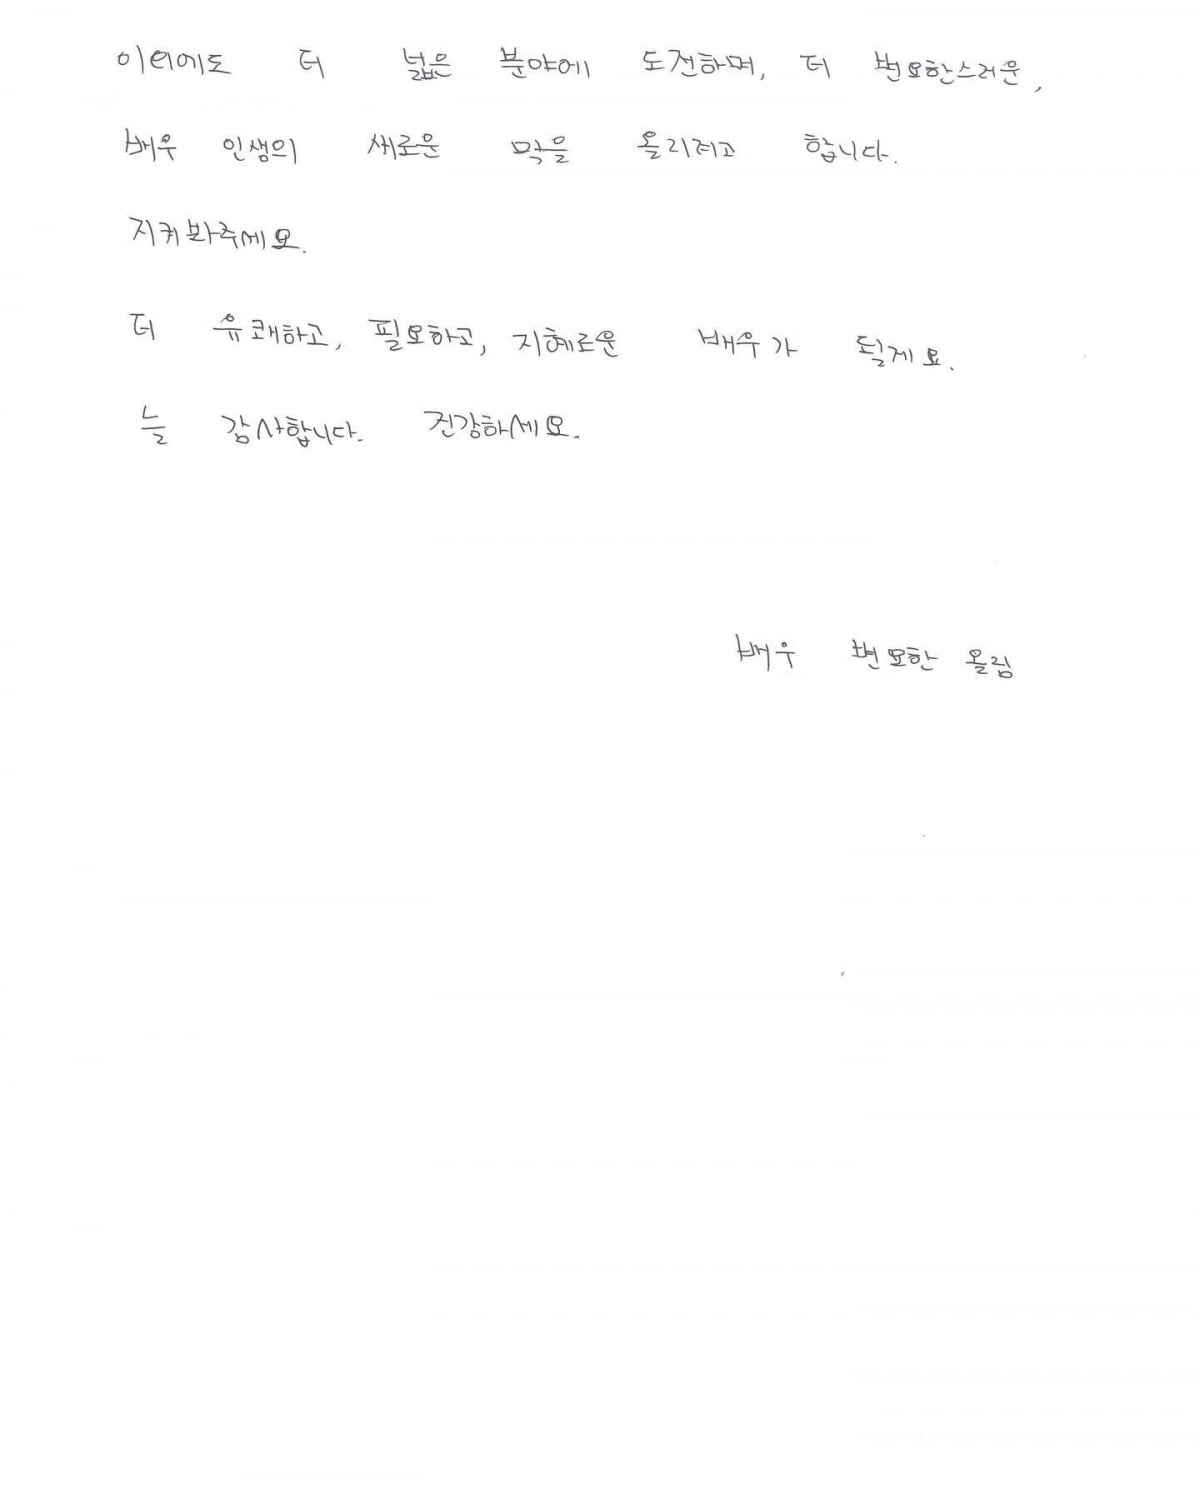 이외에도 더 넓은 분야에 도전하며, 더 변요한스러운,
배우 인생의 새로운 막을 올리려고 합니다.
지켜봐주세요.
더 유쾌하고, 필요하고, 지혜로운 배우가 될게요.
늘 감사합니다. 건강하세요.
배우 변요한 올림